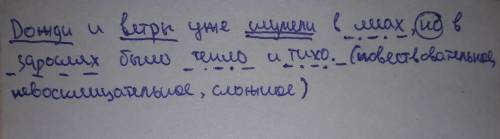 Дожди и ветры уже шумели в лесах, но в
зарослях было тепло и тихо. (повествовательное,
невосклицательное, сложное)